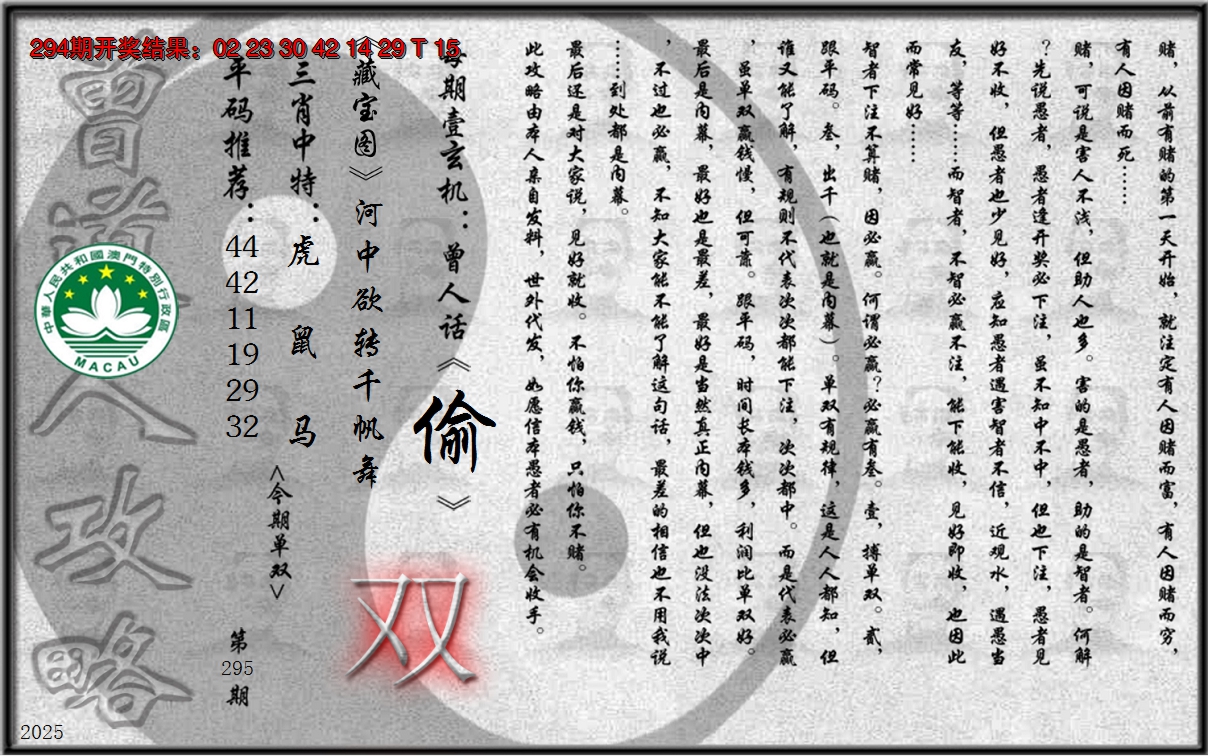 294期开奖结果：02 23 30 42 14 29 T 15
赌，从前有赌的第一天开始，就注定有人因赌而富，有人因赌而穷，
有人因赌而死……
赌，可说是害人不浅，但助人也多。害的是愚者，助的是智者。何解
？先说愚者，愚者逢开奖必下注，虽不知中不中，但也下注，愚者见
好不收，但愚者也少见好，应知愚者遇害智者不信，近观水，遇愚当
友，等等……而智者，不智必赢不注，能下能收，见好即收，也因此
而常见好……
智者下注不算赌，因必赢。何谓必赢？必赢有叁。壹，搏单双。贰，
跟平码。叁，出千（也就是内幕）。单双有规律，这是人人都知，但
谁又能了解，有规则不代表次次都能下注，次次都中。而是代表必赢
，虽单双赢钱慢，但可靠。跟平码，时间长本钱多，利润比单双好。
最后是内幕，最好也是最差，最好是当然真正内幕，但也没法次次中
，不过也必赢，不知大家能不能了解这句话，最差的相信也不用我说
……到处都是内幕。
最后还是对大家说，见好就收。不怕你赢钱，只怕你不赌。
此攻略由本人亲自发料，世外代发，如愿信本愚者必有机会收手。
每期壹玄机：曾人话《偷》
《藏宝图》河中欲转千帆舞
双
三肖中特：虎 鼠 马
<今期单双>
平码推荐：44 42 11 19 29 32
第295期
曾道人攻略
中華人民共和國澳門特別行政區
MACAU
2025